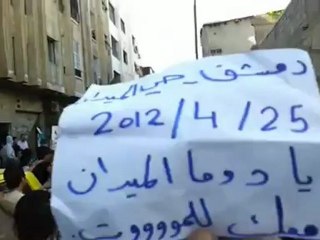 دمشق - حي الميدان
2012/4/25
يا دوما الميدان
معك للموووت